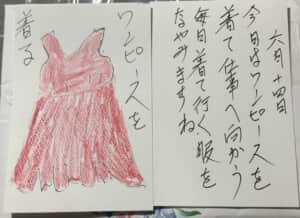 六月十四日
今日はワンピースを
着て仕事へ向かう
毎日着て行く服を
なやみますね
ワンピースを
着る